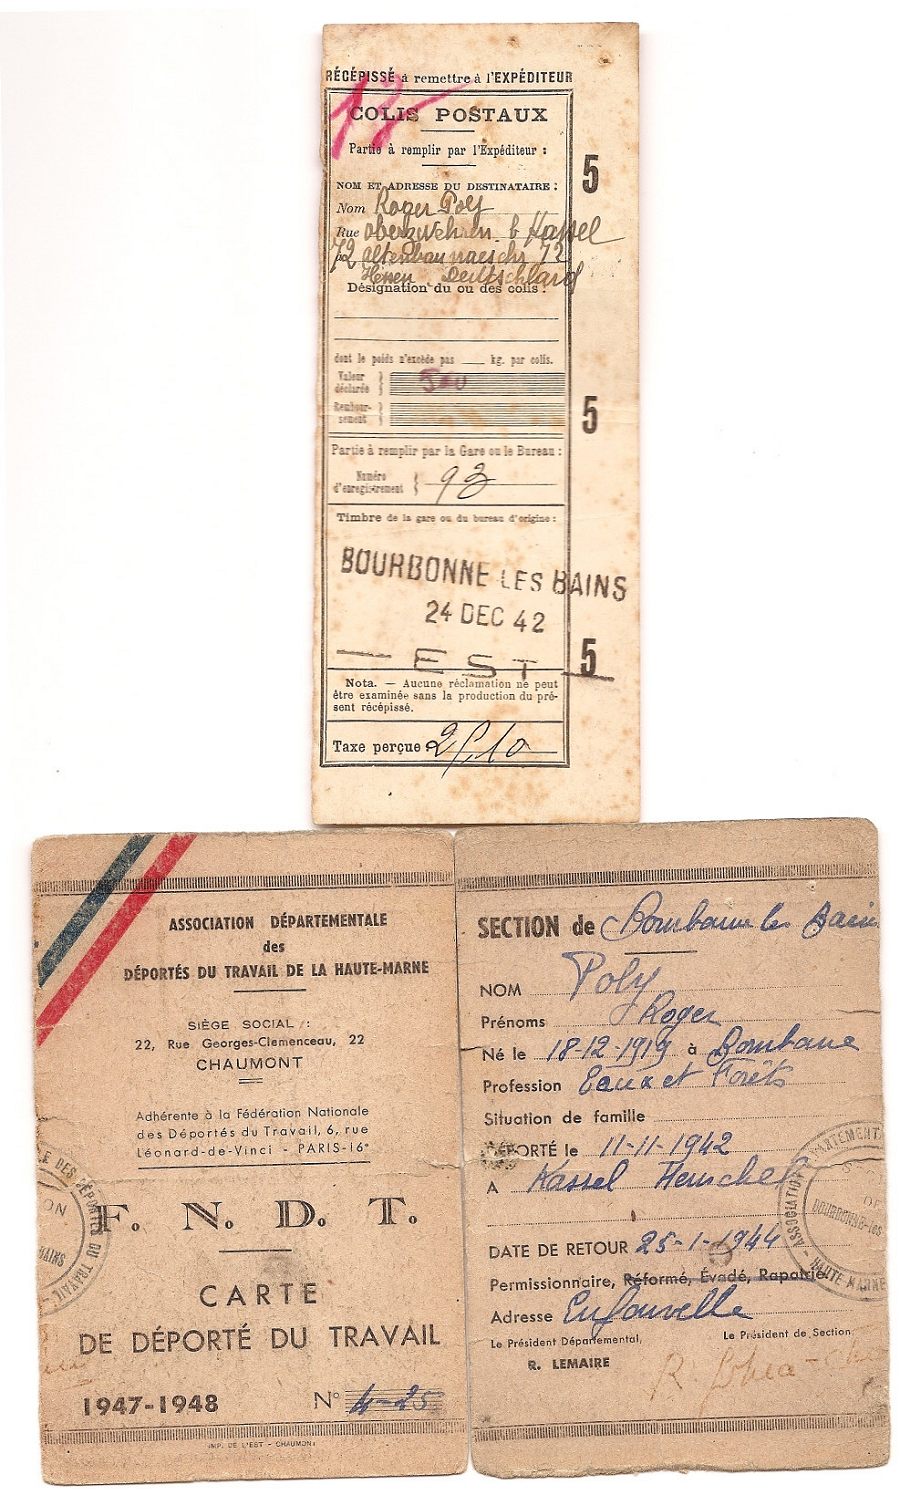 RÉCÉPISSÉ à remettre à l'EXPÉDITEUR
COLIS POSTAUX
Partie à remplir par l'Expéditeur :
5
NOM ET ADRESSE DU DESTINATAIRE :
Nom Roger Poly
Rue Oberzwehren b Kassel
72 altenbaunaerschr 72
Hessen Deutschland
Désignation du ou des colis :
dont le poids n'excède pas kg. par colis.
Valeur déclarée 500
Rembour-
sement
5
Partie à remplir par la Gare ou le Bureau :
Numéro
d'enregistrement 93
Timbre de la gare ou du bureau d'origine :
BOURBONNE LES BAINS
24 DEC 42
— EST —
5
Nota. — Aucune réclamation ne peut
être examinée sans la production du pré-
sent récépissé.
Taxe perçue
ASSOCIATION DÉPARTEMENTALE
des
DÉPORTÉS DU TRAVAIL DE LA HAUTE-MARNE
SIÈGE SOCIAL :
22, Rue Georges-Clemenceau, 22
CHAUMONT
Adhérente à la Fédération Nationale
des Déportés du Travail, 6, rue
Léonard-de-Vinci - PARIS-16e
F. N. D. T.
CARTE
DE DÉPORTÉ DU TRAVAIL
1947-1948 N° 4-25
IMP. DE L'EST - CHAUMONT
DES DÉPORTÉS DU TRAVAIL
SECTION de Bourbonne les Bains
NOM Poly
Prénoms Roger
Né le 18-12-1919 à Bourbonne
Profession Eaux et Forêts
Situation de famille
DÉPORTÉ le 11-11-1942
A Kassel Henschel
DATE DE RETOUR 25-1-1944
Permissionnaire, Réformé, Évadé, Rapatrié
Adresse Enfonvelle
Le Président Départemental,
Le Président de Section,
R. LEMAIRE
ASSOCIATION DÉPARTEMENTALE
BOURBONNE-les
HAUTE MARNE